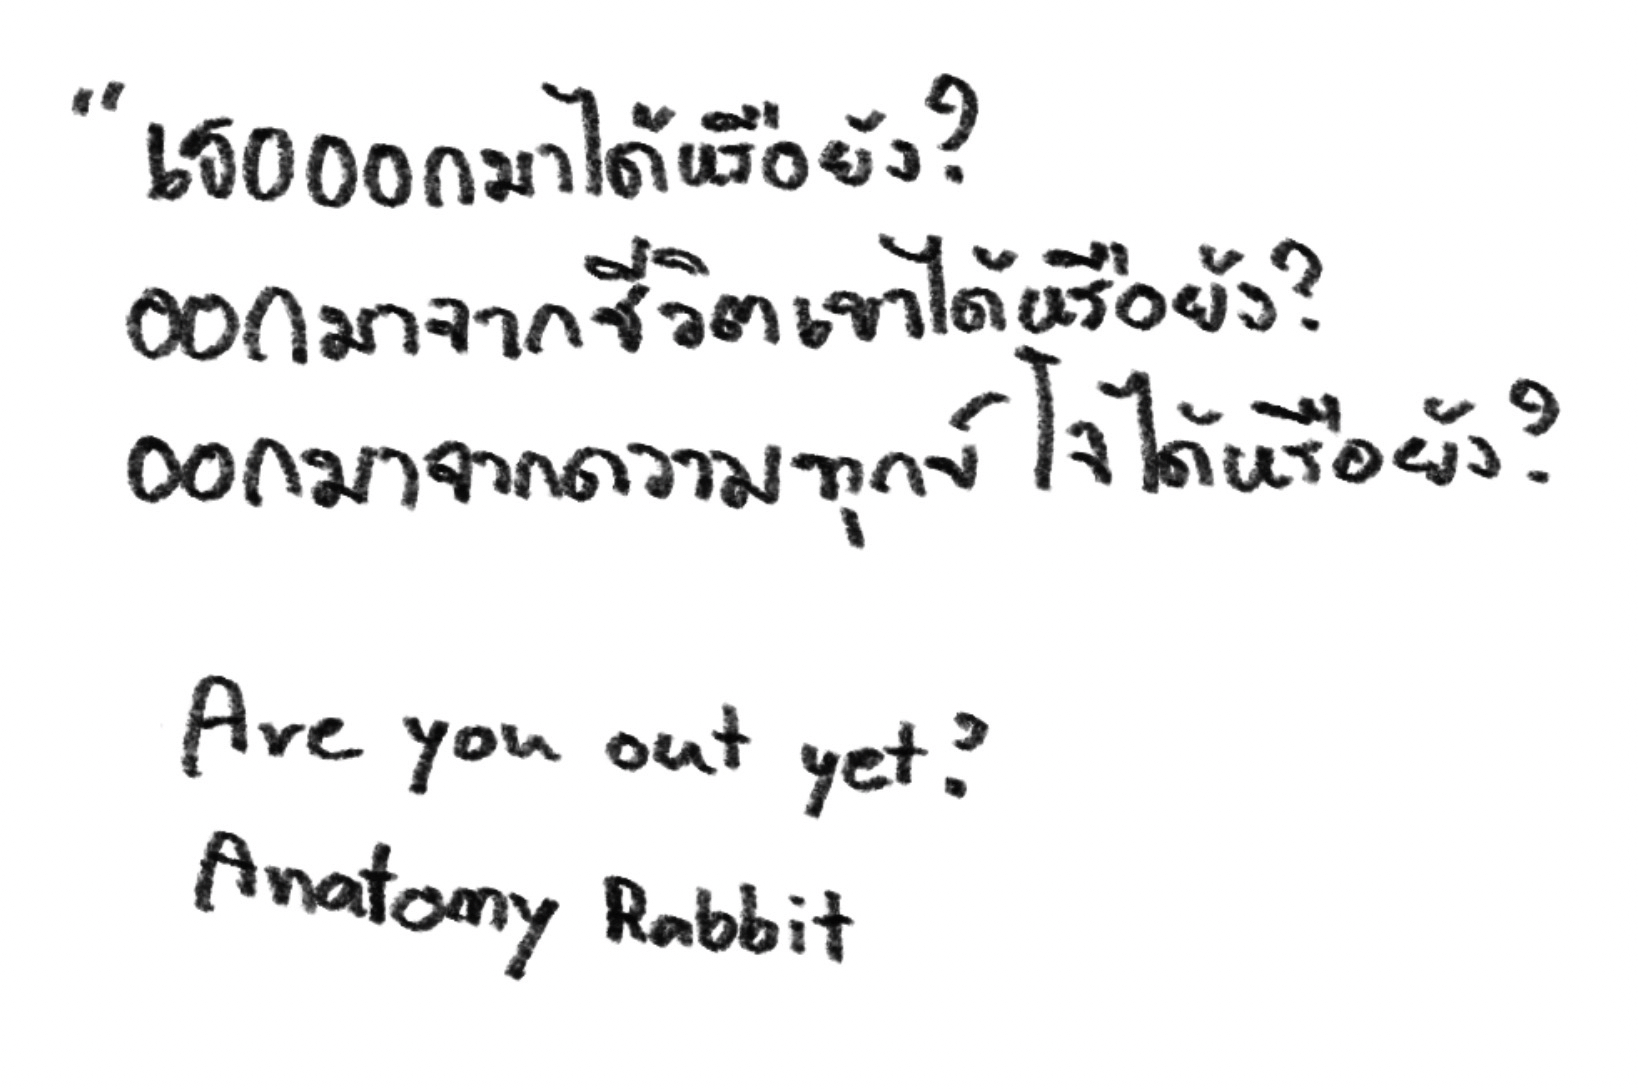 "เธอออกมาได้หรือยัง?
ออกมาจากชีวิตเขาได้หรือยัง?
ออกมาจากความทุกข์ ใจได้หรือยัง?
Are you out yet?
Anatomy Rabbit